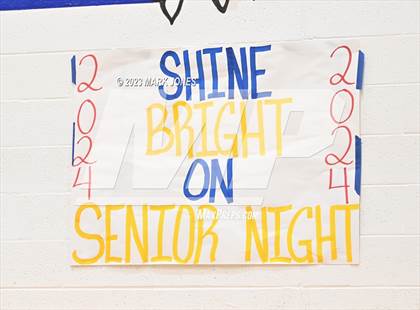 © 2023 MARK JONES
SHINE
BRIGHT
ON
SENIOR NIGHT
2024
2024
MP
MAXPREPS.COM